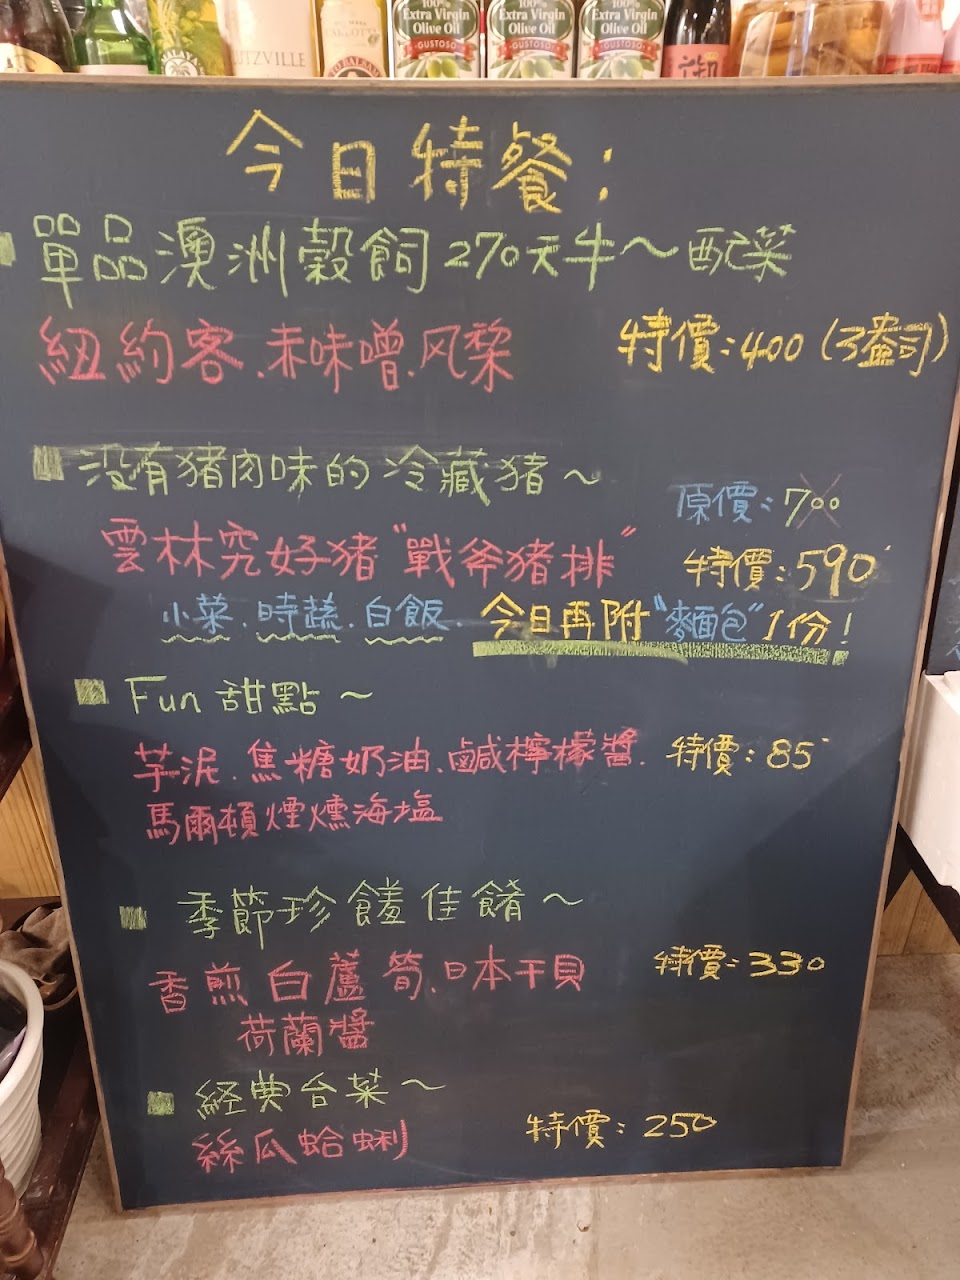 100%
Extra Virgin
Olive Oil
GUSTOSO
100%
Extra Virgin
Olive Oil
GUSTOSO
100%
Extra Virgin
Olive Oil
GUSTOSO
今日特餐：
單品澳洲穀飼270天牛～配菜
紐約客.赤味噌.风梨 特價:400(3盎司)
没有猪肉味的冷藏猪～
原價:700
雲林究好猪"戰斧猪排" 特價:590
小菜.時蔬.白飯.今日再附"麵包"1份!
Fun 甜點～
芋泥.焦糖奶油.鹹檸檬醬. 特價:85
馬爾頓煙燻海塩
季節珍饈佳餚～
香煎白蘆筍.日本干貝 特價:330
荷蘭醬
経典台菜～
絲瓜蛤蜊 特價:250